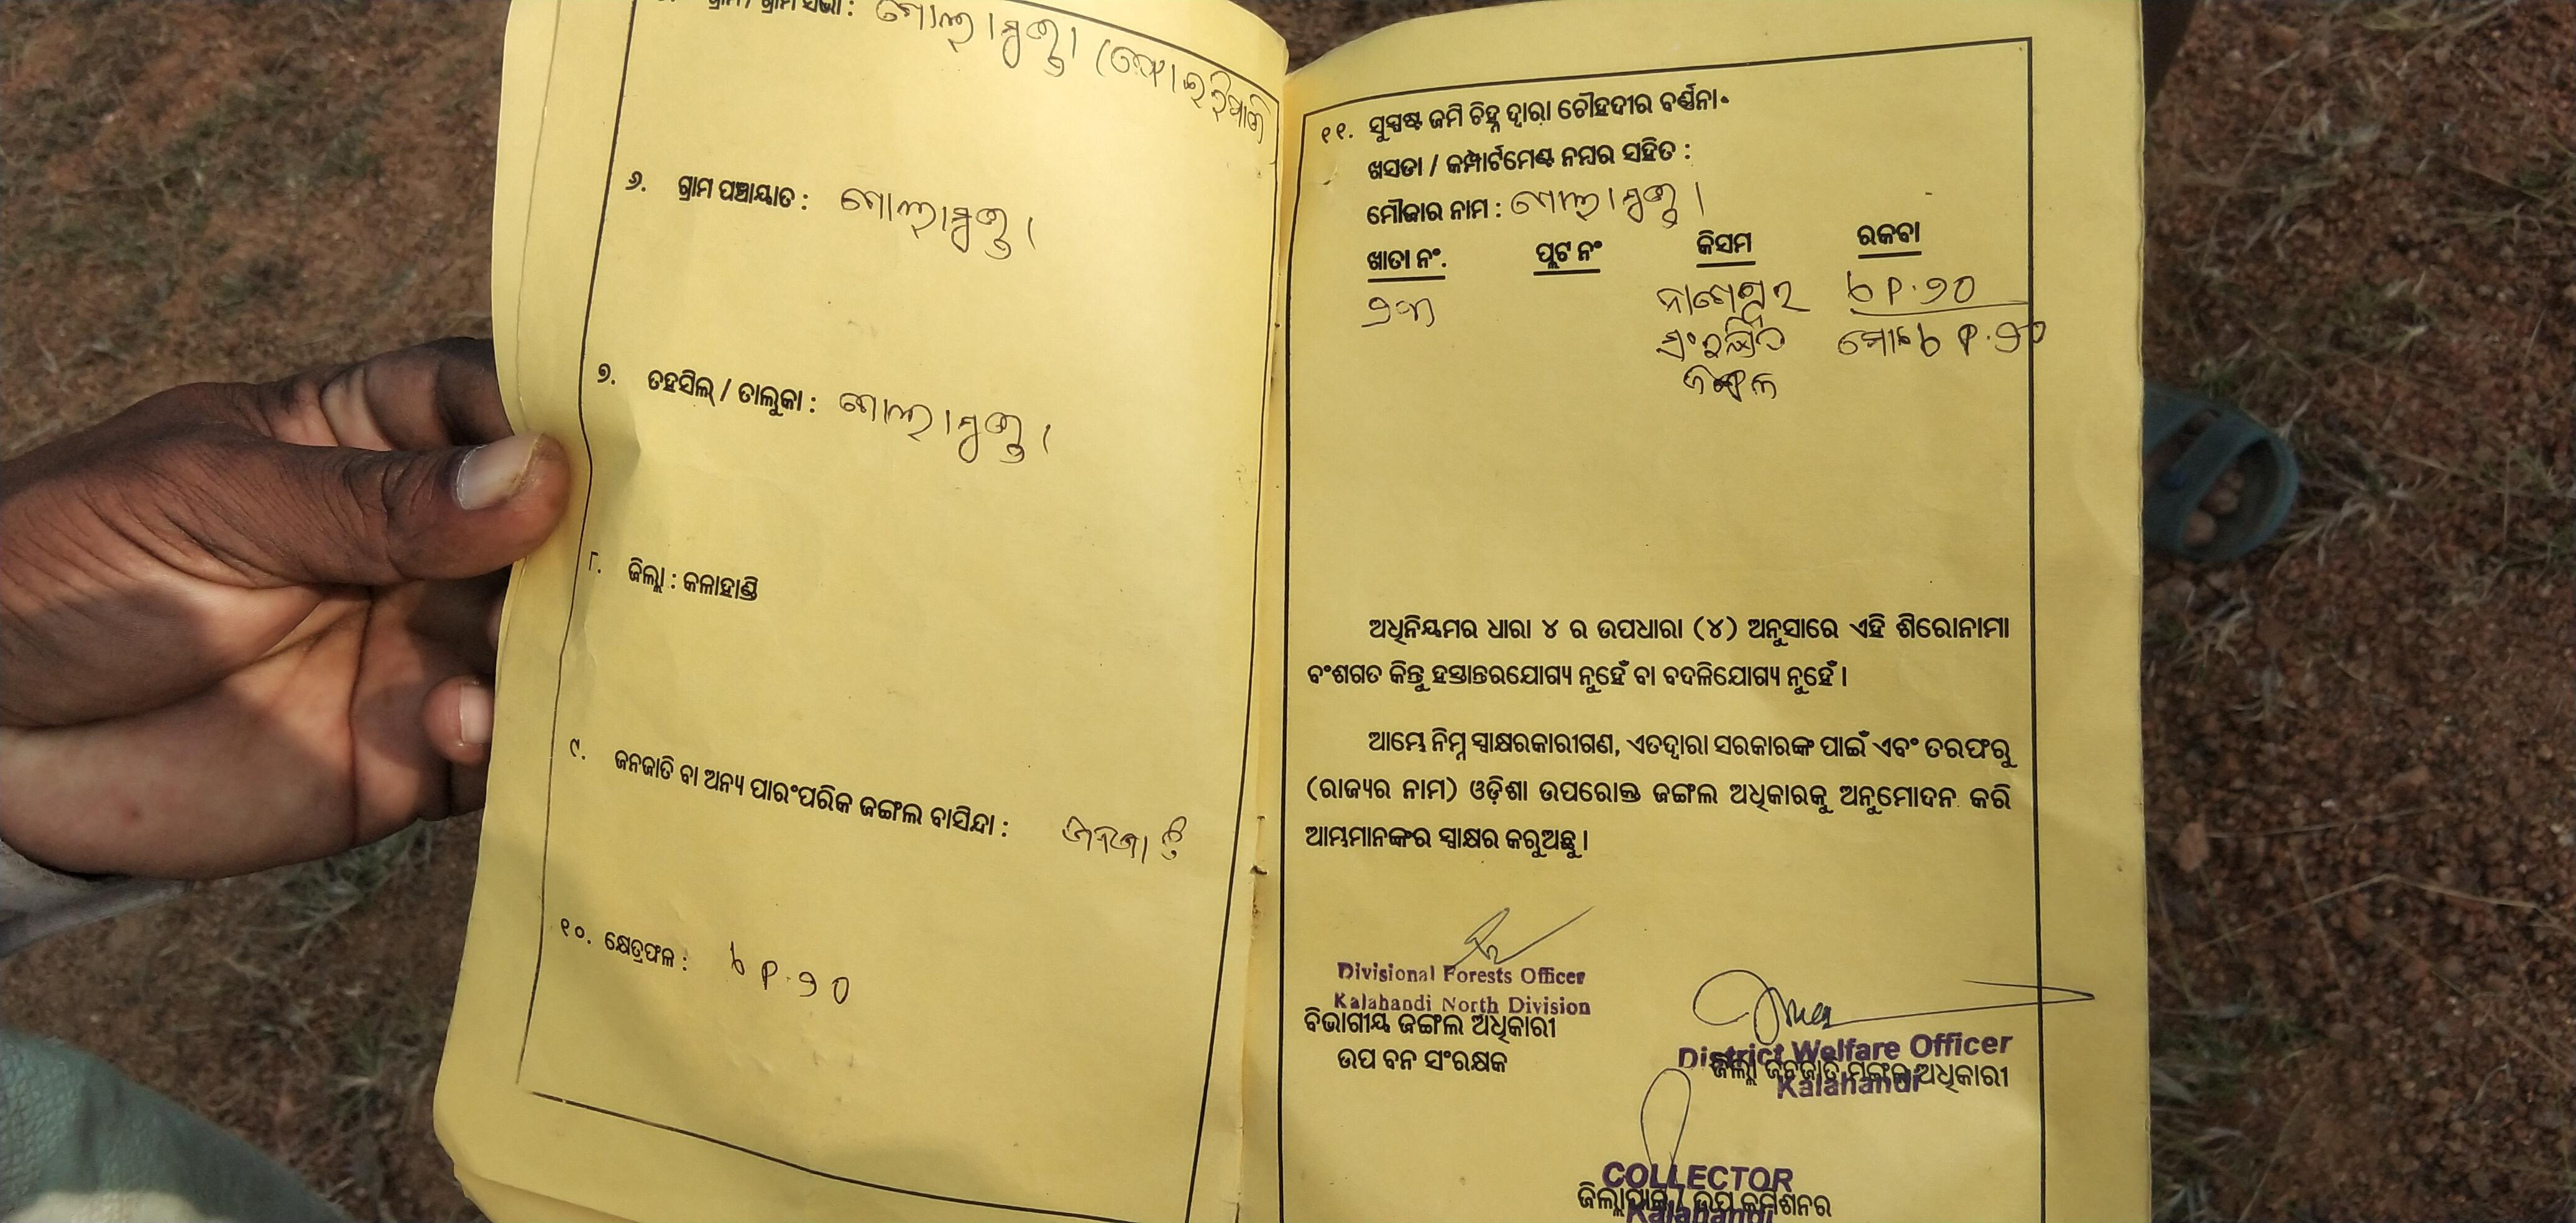 ଗ୍ରାମ / ଗ୍ରାମ ସଭା : ଗୋଲାମୁଣ୍ଡା
୬. ଗ୍ରାମ ପଞ୍ଚାୟାତ : ଗୋଲାମୁଣ୍ଡା
୭. ତହସିଲ୍ / ତାଲୁକା : ଗୋଲାମୁଣ୍ଡା
୮. ଜିଲ୍ଲା : କଳାହାଣ୍ଡି
୯. ଜନଜାତି ବା ଅନ୍ୟ ପାରଂପରିକ ଜଙ୍ଗଲ ବାସିନ୍ଦା : ଜନଜାତି
୧୦. କ୍ଷେତ୍ରଫଳ :
୧୧. ସୁସ୍ପଷ୍ଟ ଜମି ଚିହ୍ନ ଦ୍ୱାରା ଚୌହଦୀର ବର୍ଣ୍ଣନା
ଖସଡା / କମ୍ପାର୍ଟମେଣ୍ଟ ନମ୍ବର ସହିତ :
ମୌଜାର ନାମ : ଗୋଲାମୁଣ୍ଡା
ଖାତା ନଂ. ପ୍ଲଟ ନଂ କିସମ ରକବା
ସଂରକ୍ଷିତ
ଜଙ୍ଗଲ
ଅଧିନିୟମର ଧାରା ୪ ର ଉପଧାରା (୪) ଅନୁସାରେ ଏହି ଶିରୋନାମା
ବଂଶଗତ କିନ୍ତୁ ହସ୍ତାନ୍ତରଯୋଗ୍ୟ ନୁହେଁ ବା ବଦଳିଯୋଗ୍ୟ ନୁହେଁ ।
ଆମ୍ଭେ ନିମ୍ନ ସ୍ୱାକ୍ଷରକାରୀଗଣ, ଏତଦ୍ୱାରା ସରକାରଙ୍କ ପାଇଁ ଏବଂ ତରଫରୁ
(ରାଜ୍ୟର ନାମ) ଓଡ଼ିଶା ଉପରୋକ୍ତ ଜଙ୍ଗଲ ଅଧିକାରକୁ ଅନୁମୋଦନ କରି
ଆମ୍ଭମାନଙ୍କର ସ୍ୱାକ୍ଷର କରୁଅଛୁ ।
Divisional Forests Officer
Kalahandi North Division
ବିଭାଗୀୟ ଜଙ୍ଗଲ ଅଧିକାରୀ
ଉପ ବନ ସଂରକ୍ଷକ
District Welfare Officer
ଜିଲ୍ଲା ଜନଜାତି ମଙ୍ଗଳ ଅଧିକାରୀ
Kalahandi
COLLECTOR
ଜିଲ୍ଲାପାଳ / ଉପ କମିଶନର
Kalahandi